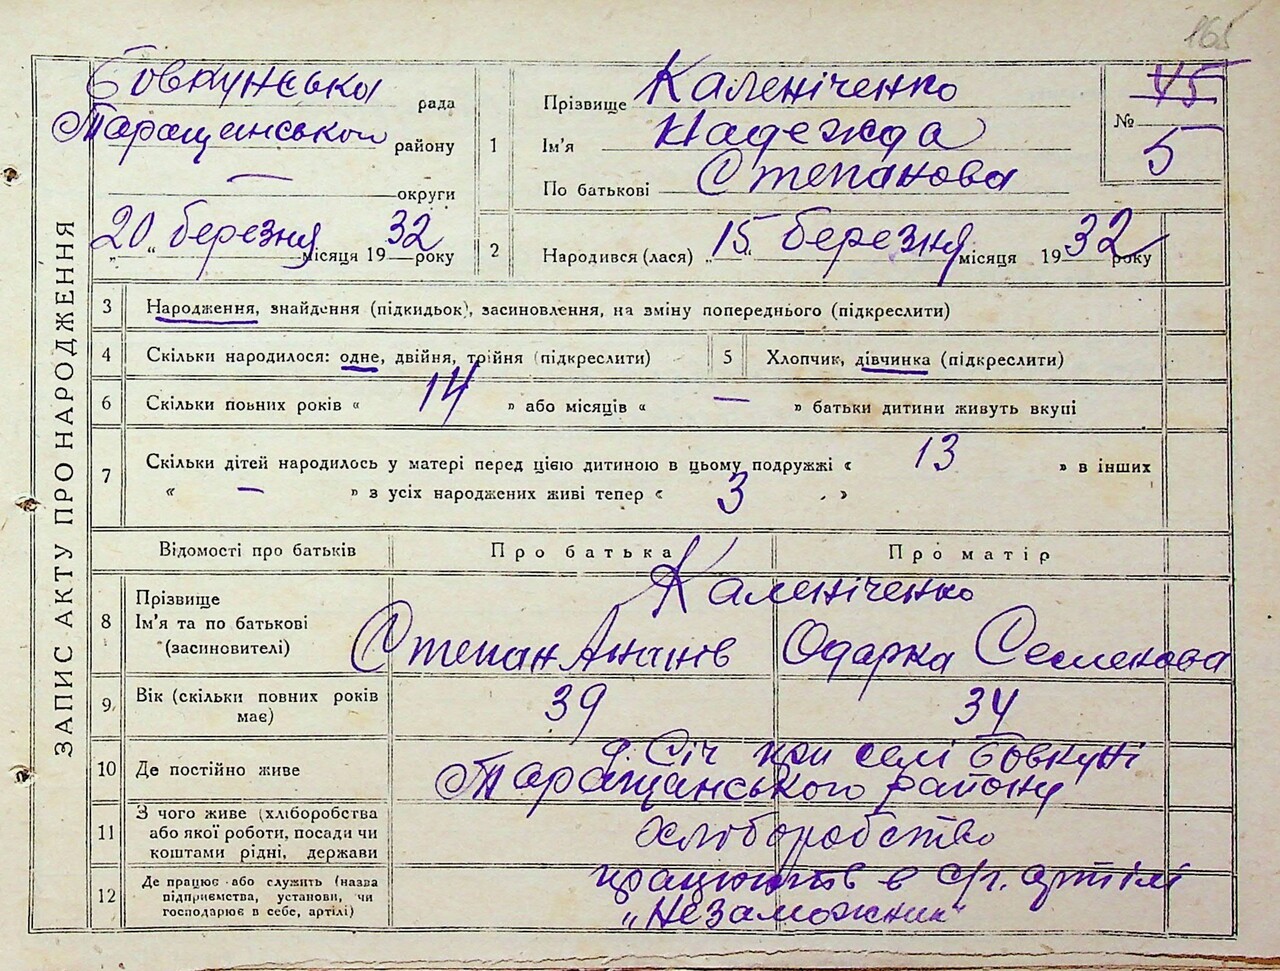 165
ЗАПИС АКТУ ПРО НАРОДЖЕННЯ
Бовкунська рада
Таращанської району
— округи
„20“ березня місяця 1932 року
1 Прізвище Каленіченко
Ім'я Надежда
По батькові Степанова
№ 45
5
2 Народився (лася) „15“ березня місяця 1932 року
3 Народження, знайдення (підкидьок), засиновлення, на зміну попереднього (підкреслити)
4 Скільки народилося: одне, двійня, трійня (підкреслити) 5 Хлопчик, дівчинка (підкреслити)
6 Скільки повних років « 14 » або місяців « — » батьки дитини живуть вкупі
7 Скільки дітей народилось у матері перед цією дитиною в цьому подружжі « 13 » в інших
« — » з усіх народжених живі тепер « 3 »
Відомості про батьків Про батька Про матір
8 Прізвище Каленіченко
Ім'я та по батькові
(засиновителі) Степан Ананів Одарка Семенова
9 Вік (скільки повних років має) 39 34
10 Де постійно живе Січ при селі Бовкуні
Таращанського району
11 З чого живе (хліборобства
або якої роботи, посади чи
коштами рідні, держави хліборобство
12 Де працює або служить (назва
підприємства, установи, чи
господарює в себе, артілі) працюють в с/г. артілі
„Незаможник“